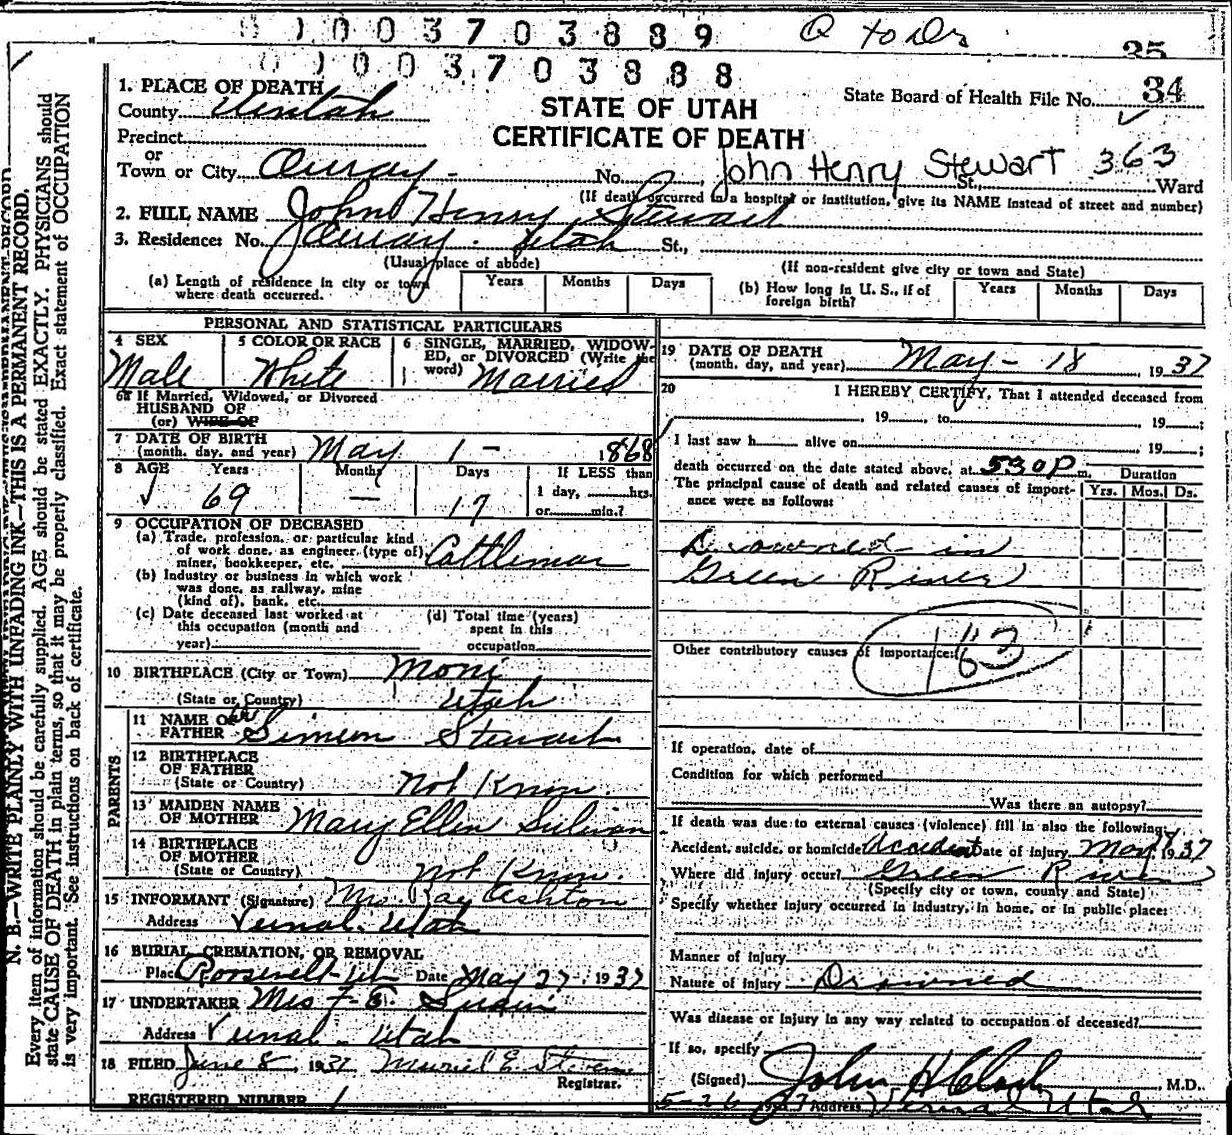 0 1 0 0 3 7 0 3 8 8 9
35
0 1 0 0 3 7 0 3 8 8 8
1. PLACE OF DEATH
County Uintah
STATE OF UTAH
State Board of Health File No. 34
Precinct
CERTIFICATE OF DEATH
or
Town or City Ouray No. John Henry Stewart St., 363 Ward
(If death occurred in a hospital or institution, give its NAME instead of street and number)
2. FULL NAME John Henry Stewart
3. Residence: No. Ouray. Utah St.,
(Usual place of abode)
(If non-resident give city or town and State)
(a) Length of residence in city or town where death occurred. Years Months Days
(b) How long in U. S., if of foreign birth? Years Months Days
PERSONAL AND STATISTICAL PARTICULARS
4 SEX Male
5 COLOR OR RACE White
6 SINGLE, MARRIED, WIDOWED, or DIVORCED (Write the word) Married
6a If Married, Widowed, or Divorced
HUSBAND OF
(or) WIFE OF
7 DATE OF BIRTH
(month, day, and year) May 1 - 1868
8 AGE Years Months Days If LESS than
69 — 17 1 day, hrs.
or min.?
9 OCCUPATION OF DECEASED
(a) Trade, profession, or particular kind
of work done, as engineer, (type of)
miner, bookkeeper, etc. Cattleman
(b) Industry or business in which work
was done, as railway, mine
(kind of), bank, etc.
(c) Date deceased last worked at
this occupation (month and
year)
(d) Total time (years)
spent in this
occupation
10 BIRTHPLACE (City or Town) Moni
(State or Country) Utah
PARENTS
11 NAME OF
FATHER Simeon Stewart
12 BIRTHPLACE
OF FATHER
(State or Country) Not Know.
13 MAIDEN NAME
OF MOTHER Mary Ellen Sulivan
14 BIRTHPLACE
OF MOTHER
(State or Country) Not Know.
15 INFORMANT (Signature) Mrs. Ray Ashton
Address Vernal. Utah
16 BURIAL, CREMATION, OR REMOVAL
Place Roosevelt Ut Date May 27, 1937
17 UNDERTAKER Mrs F. S. Swain
Address Vernal. Utah
18 FILED June 8, 1937 Muriel E. Stevens
Registrar.
REGISTERED NUMBER 1
19 DATE OF DEATH
(month, day, and year) May - 18, 1937
20 I HEREBY CERTIFY, That I attended deceased from
, 19 , to , 19 ;
I last saw h alive on , 19 ;
death occurred on the date stated above, at 530P m.
Duration
The principal cause of death and related causes of importance were as follows: Yrs. Mos. Ds.
Drowned in
Green River
163
Other contributory causes of importance:
If operation, date of
Condition for which performed
Was there an autopsy?
If death was due to external causes (violence) fill in also the following:
Accident, suicide, or homicide Accident Date of injury May 1937
Where did injury occur? Green River
(Specify city or town, county and State)
Specify whether injury occurred in industry, in home, or in public place:
Manner of injury
Nature of injury Drowned
Was disease or injury in any way related to occupation of deceased?
If so, specify
(Signed) John H Clark, M.D.
5-26 1937 Address Vernal Utah
N. B.—WRITE PLAINLY WITH UNFADING INK—THIS IS A PERMANENT RECORD.
Every item of information should be carefully supplied. AGE should be stated EXACTLY. PHYSICIANS should
state CAUSE OF DEATH in plain terms, so that it may be properly classified. Exact statement of OCCUPATION
is very important. See instructions on back of certificate.